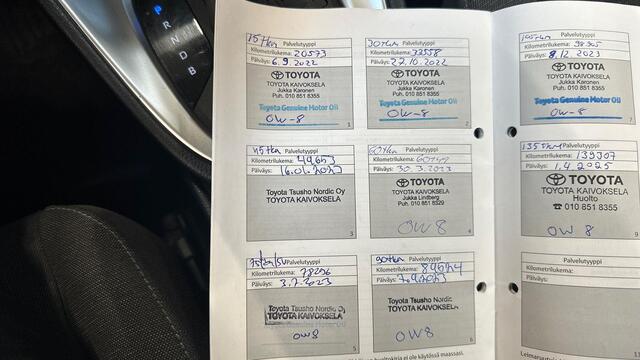 P
R
N
D
B
15tkm Palvelutyyppi
Kilometrilukema: 20573
Päiväys: 6.9.2022
TOYOTA
TOYOTA KAIVOKSELA
Jukka Karonen
Puh. 010 851 8355
Toyota Genuine Motor Oil
0W-8
1
30tkm Palvelutyyppi
Kilometrilukema: 33558
Päiväys: 27.10.2022
TOYOTA
TOYOTA KAIVOKSELA
Jukka Karonen
Puh. 010 851 8355
Toyota Genuine Motor Oil
0W-8
2
45tkm Palvelutyyppi
Kilometrilukema: 49653
Päiväys: 16.01.2023
Toyota Tsusho Nordic Oy
TOYOTA KAIVOKSELA
3
60tkm Palvelutyyppi
Kilometrilukema:
Päiväys: 30.3.2023
TOYOTA
TOYOTA KAIVOKSELA
Jukka Lindberg
Puh. 010 851 8329
0W8
4
Palvelutyyppi
Kilometrilukema: 78296
Päiväys: 3.7.2023
Toyota Tsusho Nordic
TOYOTA KAIVOKSELA
0W8
5
90tkm Palvelutyyppi
Kilometrilukema:
Päiväys: 7.9.2023
Toyota Tsusho Nordic
TOYOTA KAIVOKSELA
0W8
6
105tkm Palvelutyyppi
Kilometrilukema:
Päiväys: 8.12.2023
TOYOTA
TOYOTA KAIVOKSELA
Jukka Karonen
Puh. 010 851 8355
Toyota Genuine Motor Oil
0W-8
7
135tkm Palvelutyyppi
Kilometrilukema: 139307
Päiväys: 1.4.2025
TOYOTA
TOYOTA KAIVOKSELA
Huolto
☎ 010 851 8355
0W8
9
Palvelutyyppi
Kilometrilukema:
Päiväys:
ei ole käytössä maassasi.